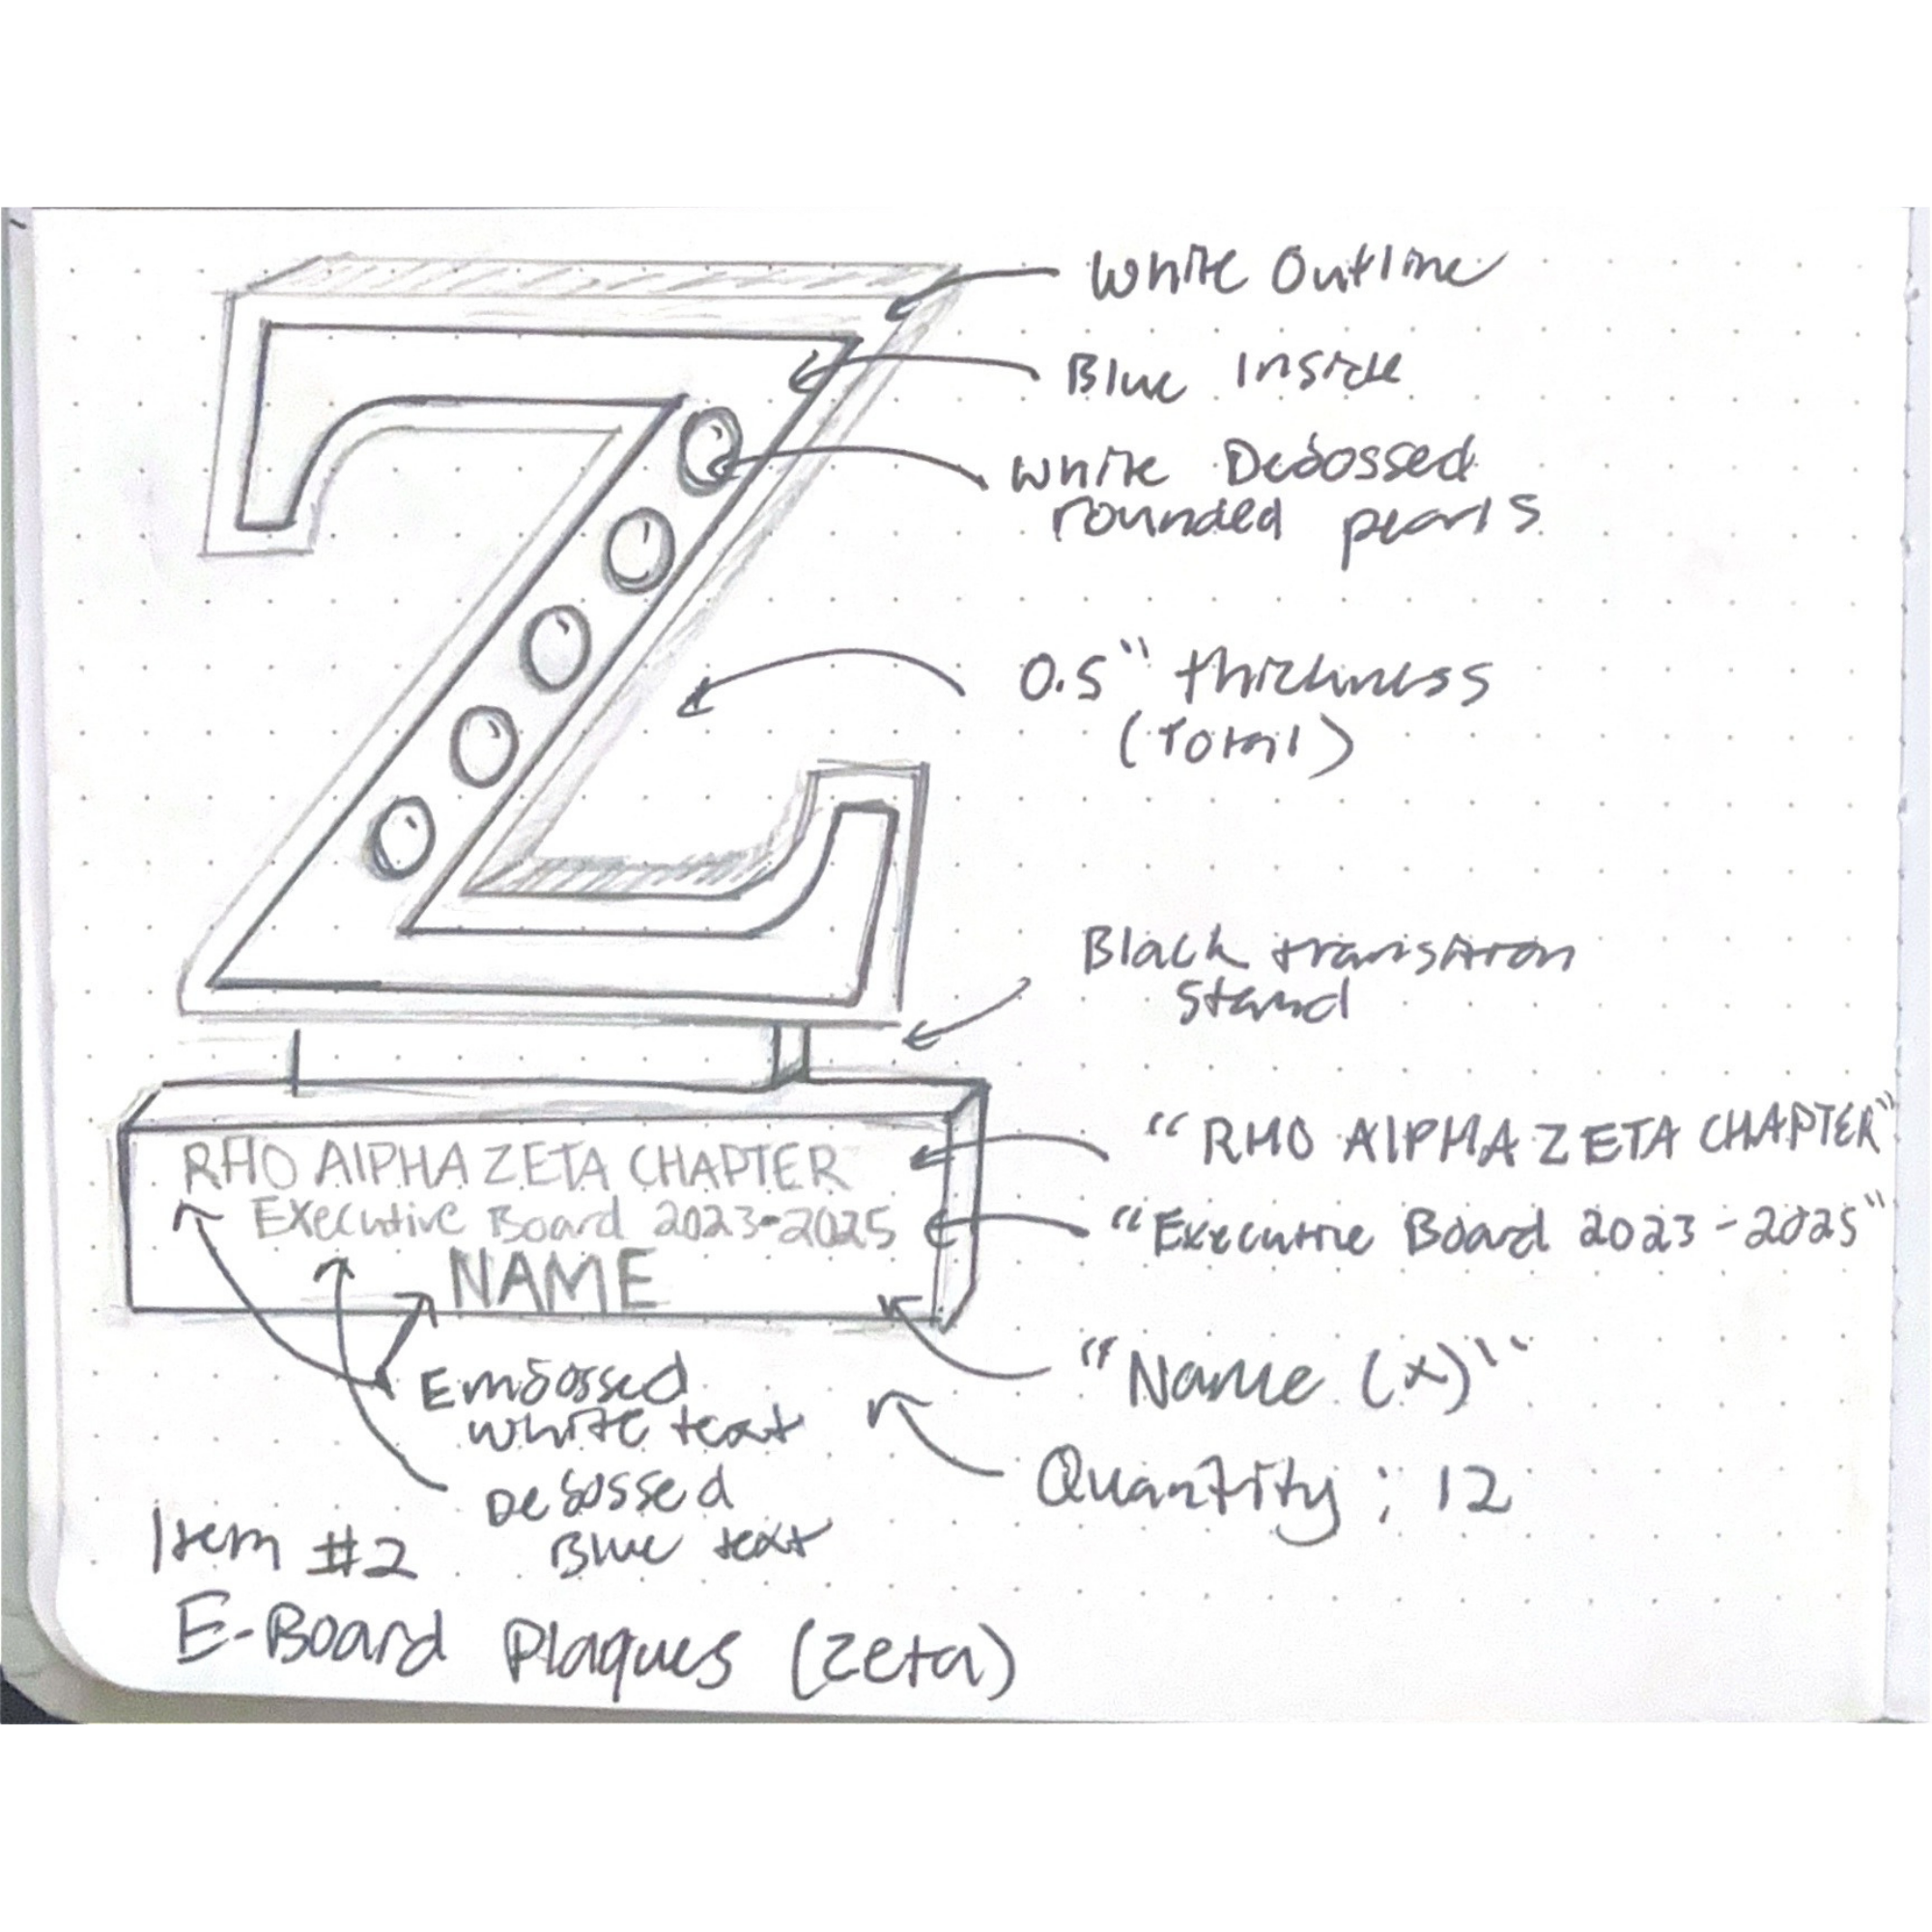 White Outline
Blue Inside
White Debossed
rounded pearls
0.5" thickness
(Total)
Black transition
stand
RHO AlPHA ZETA CHAPTER
Executive Board 2023-2025
NAME
"RHO AlPHA ZETA CHAPTER"
"Executive Board 2023-2025"
"Name (x)"
Quantity: 12
Embossed
white text
Debossed
Blue text
Item #2
E-Board Plaques (Zeta)